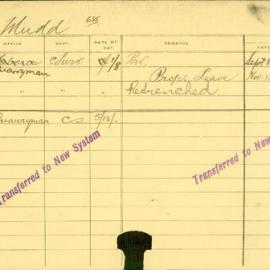 Mudd
OFFICE DEPT. RATE OF PAY REMARKS DATE
Quarryman C Surv 1/8 Sept
" " Prop: Leave Nov
Retrenched
Quarryman CS 5/16/-
Transferred to New System
Transferred to New